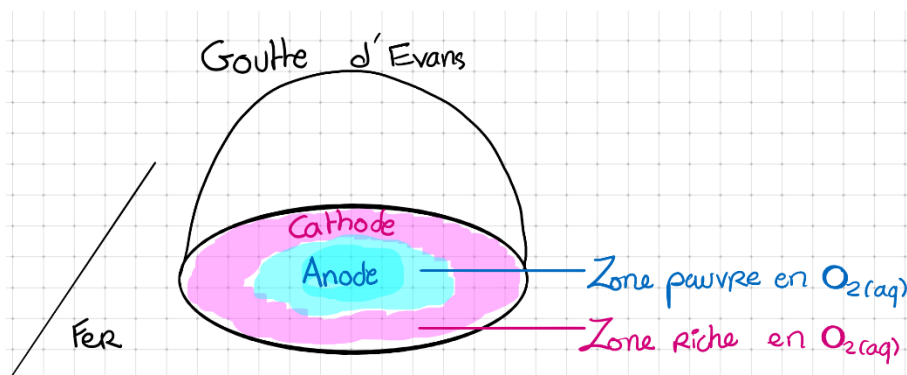 Goutte d'Evans
Cathode
Anode
Zone pauvre en O₂(aq)
Zone riche en O₂(aq)
Fer